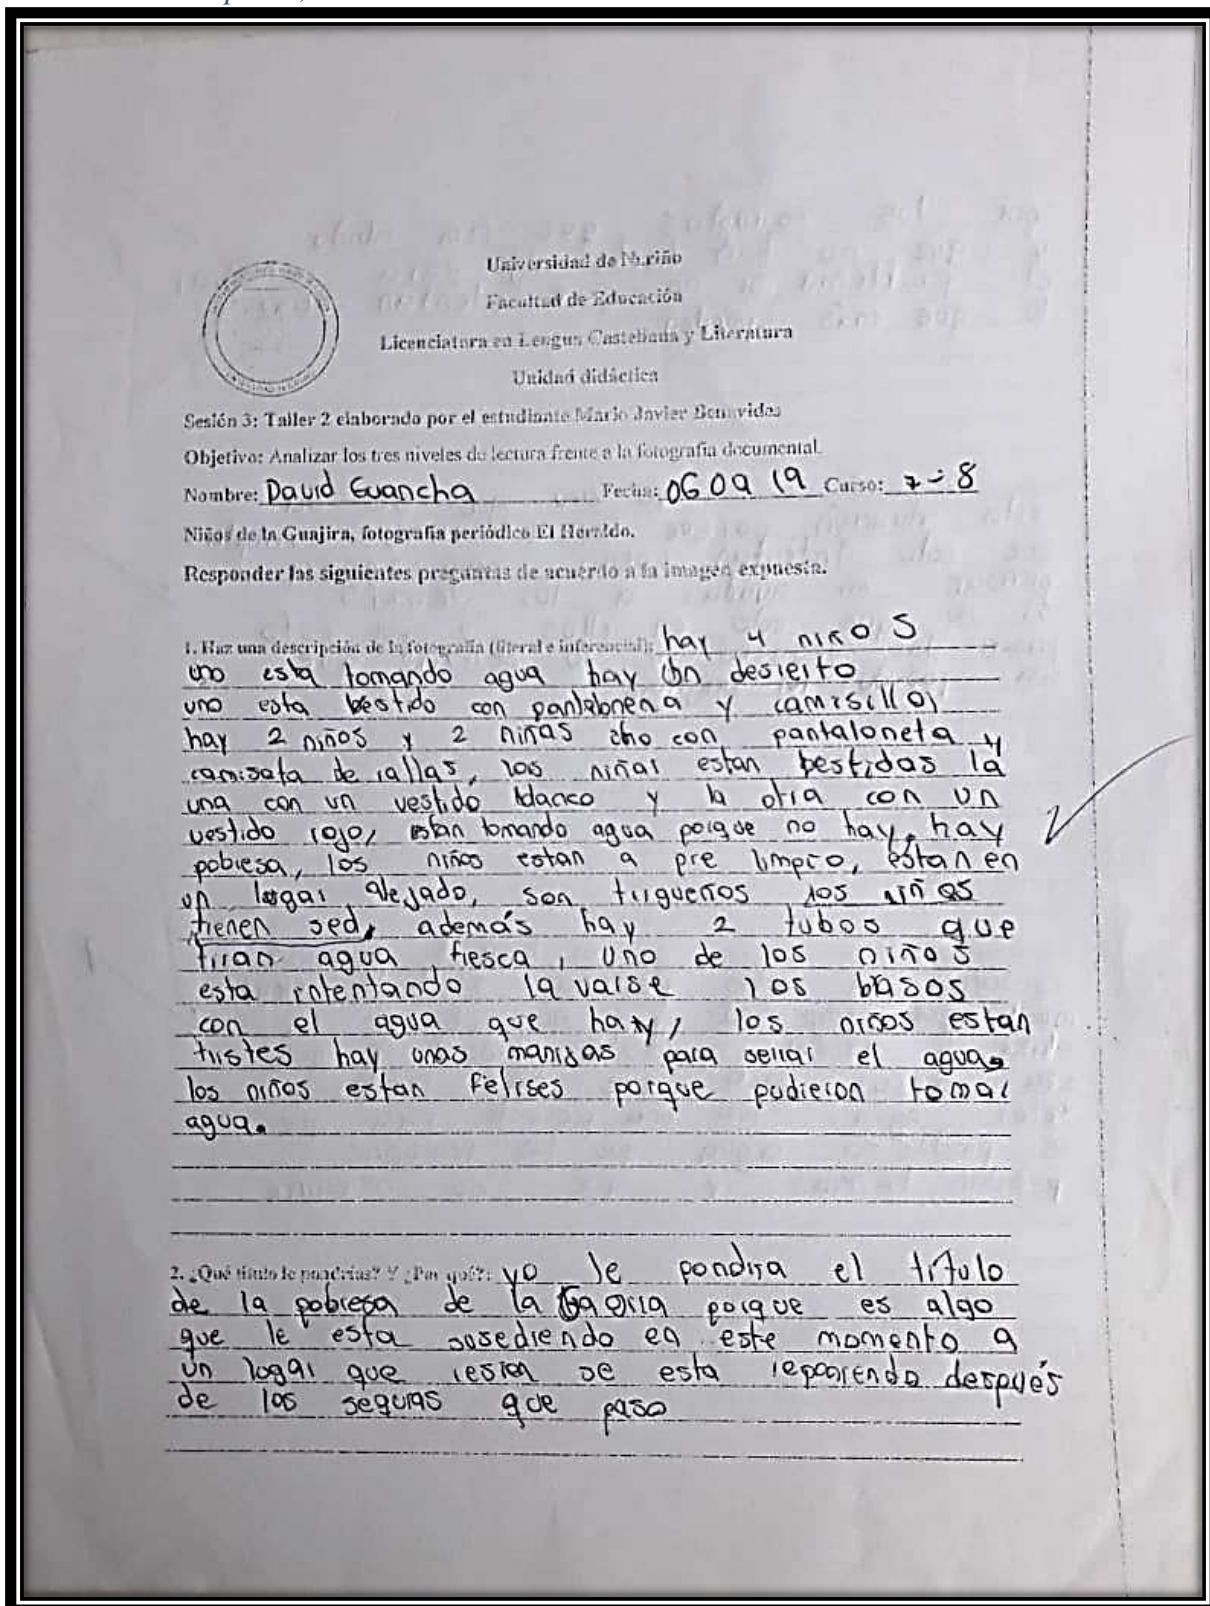 Universidad de Nariño
Facultad de Educación
Licenciatura en Lengua Castellana y Literatura
Unidad didáctica
Sesión 3: Taller 2 elaborado por el estudiante Mario Javier Benavides
Objetivo: Analizar los tres niveles de lectura frente a la fotografía documental.
Nombre: David Guancha Fecha: 06 09 19 Curso: 7-8
Niños de la Guajira, fotografía periódico El Heraldo.
Responder las siguientes preguntas de acuerdo a la imagen expuesta.
1. Haz una descripción de la fotografía (literal e inferencial): hay 4 niños
uno esta tomando agua hay un desierto
uno esta bestido con y camisillo,
hay 2 niños y 2 niñas con pantaloneta y
camiseta de rallas, las niñas estan bestidas la
una con un vestido blanco y la otra con un
vestido rojo, estan tomando agua porque no hay, hay
pobresa, los niños estan a pre limpio, estan en
un lugar alejado, son trigueños los niños
tienen sed, además hay 2 tubos que
tiran agua fresca, uno de los niños
esta intentando lavarse los basos
con el agua que hay, los niños estan
tristes hay unas manisas para serrar el agua.
los niños estan felises porque pudieron tomar
agua.
2. ¿Qué título le pondrías? Y ¿Por qué?: yo le pondria el título
de la pobresa de la porque es algo
que le esta susediendo en este momento a
un lugar que resien se esta después
de las sequias que paso